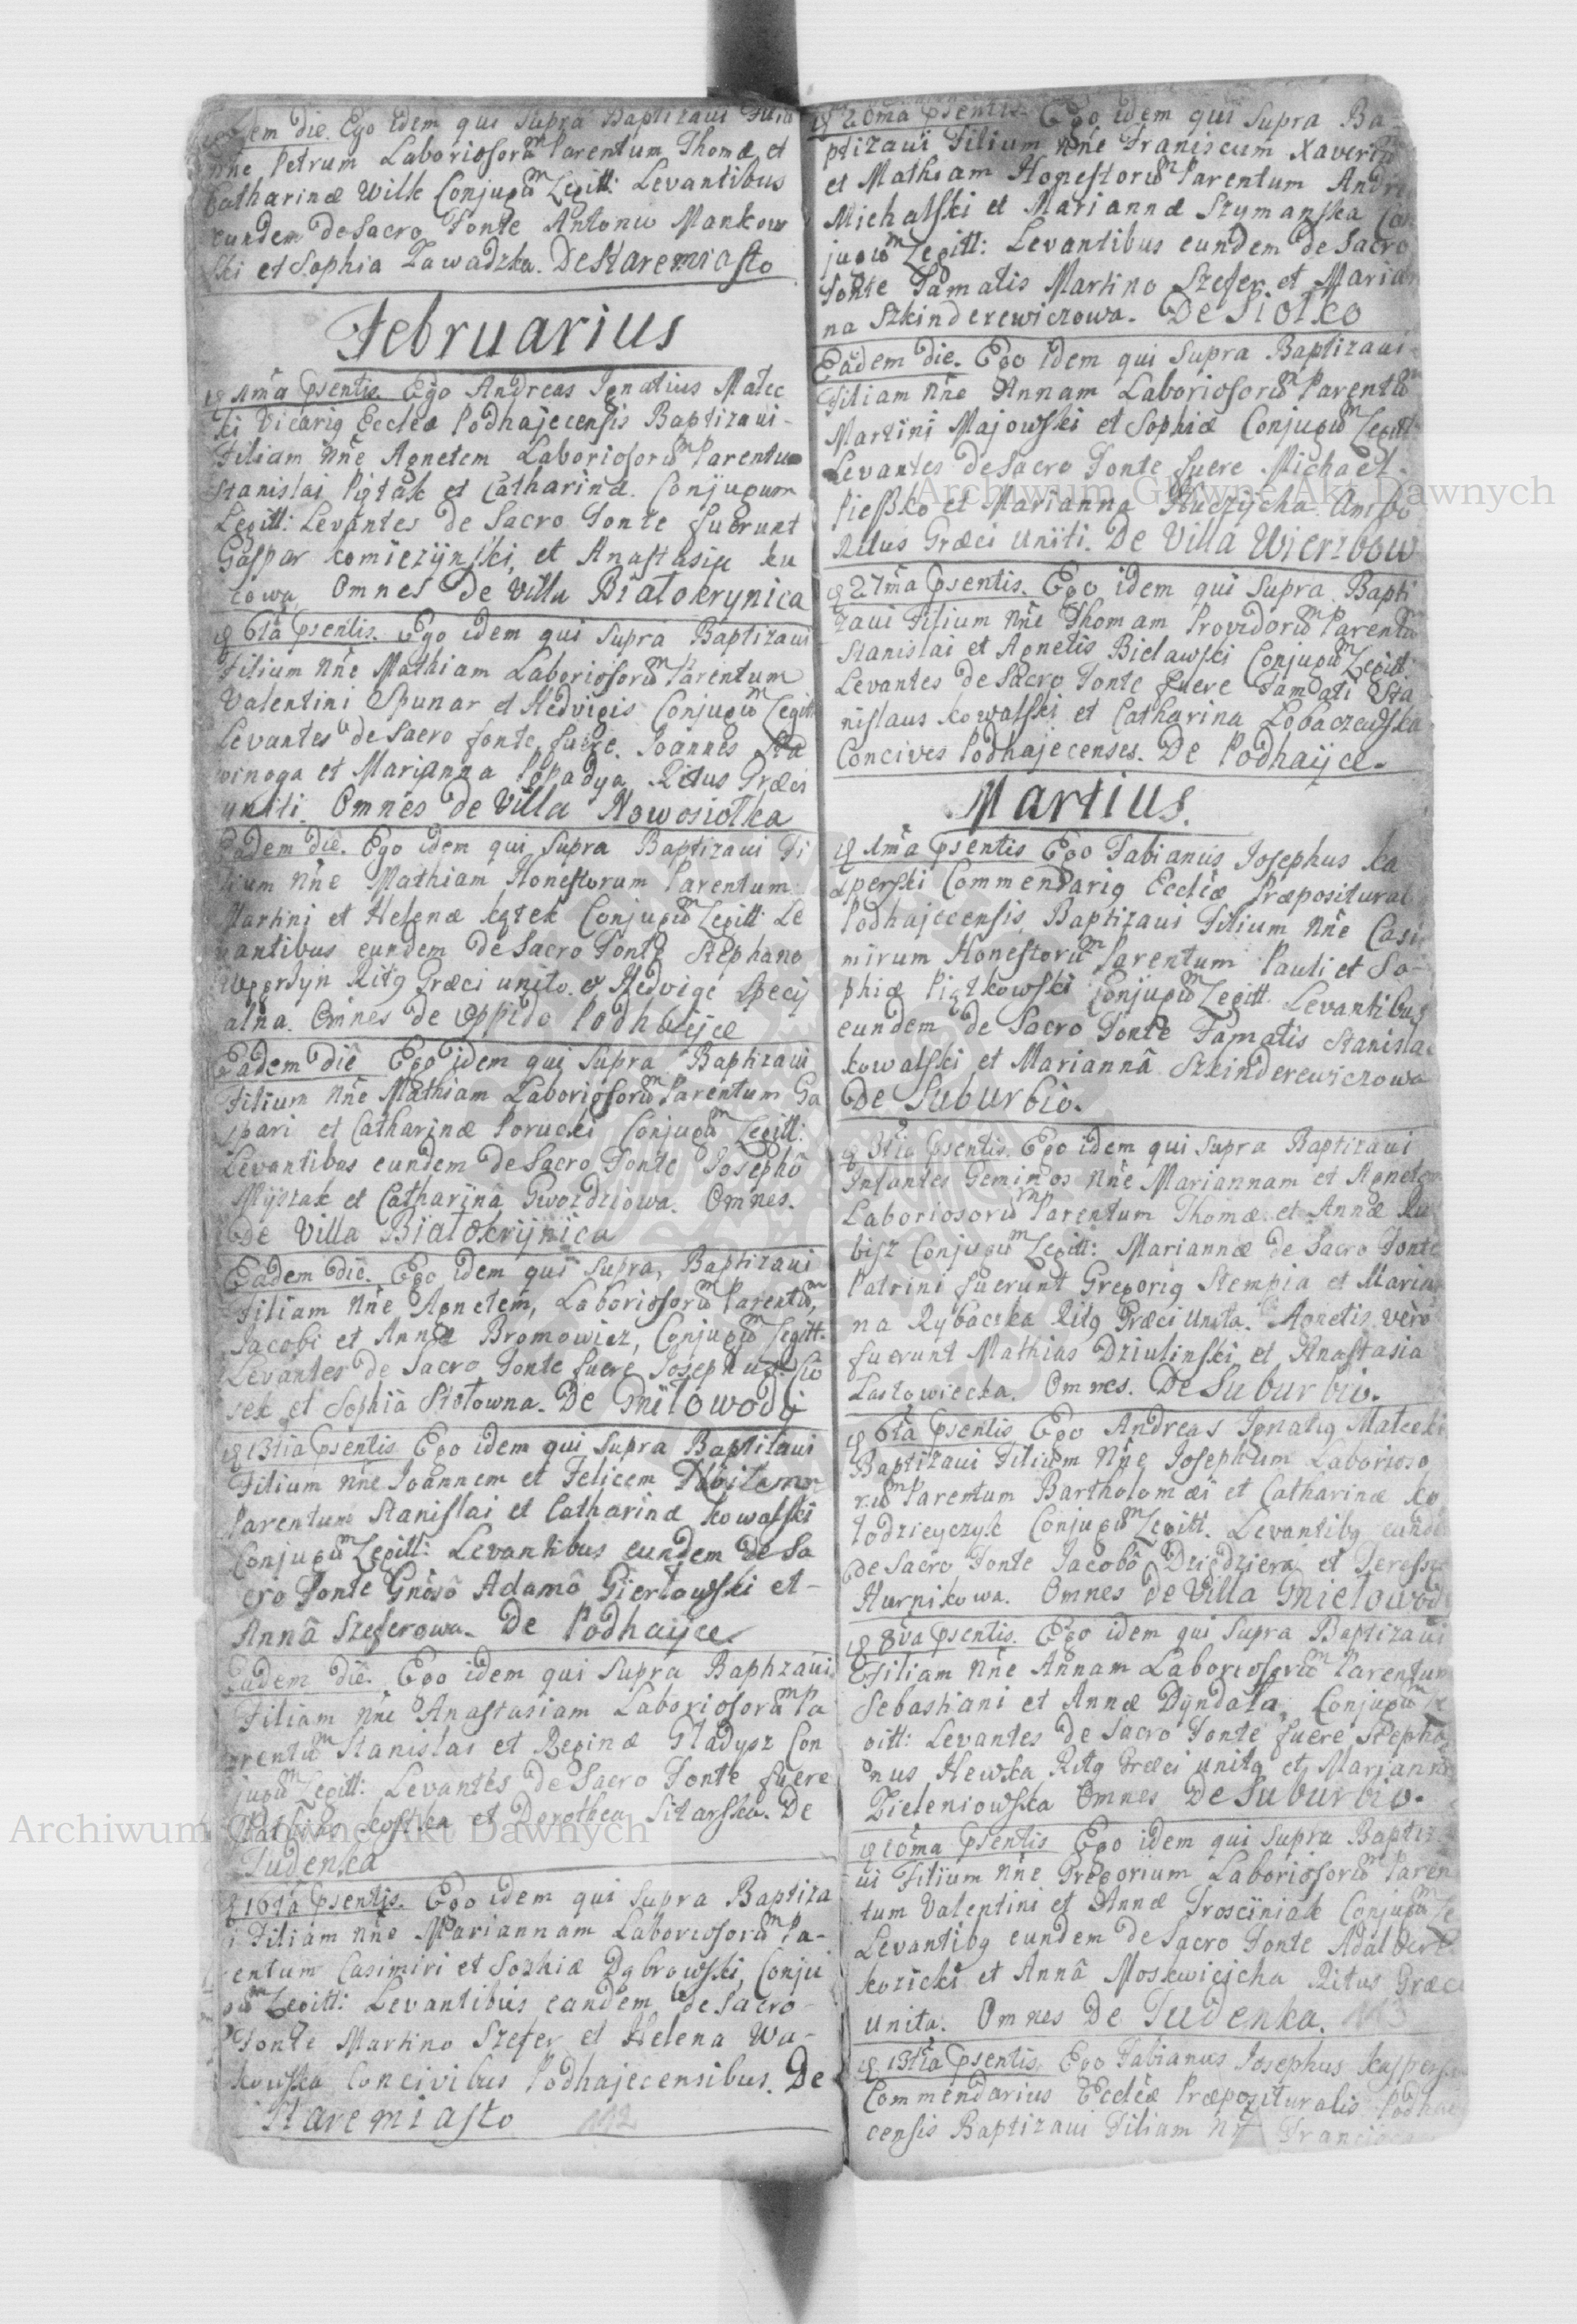 Eadem die. Ego idem qui Supra Baptizavi Filiu
nñe Petrum Laboriosorũm Parentum Thomæ et
Catharinæ Wilk Conjugũm Legitt: Levantibus
eundem de Sacro Fonte Antonio Mankow
ski et Sophia Zawadzka. De Staremiasto
Februarius
1ma Psentis. Ego Andreas Ignatius Malec
ki Vicarig Eccleæ Podhajecensis Baptizavi
Filiam Nñe Agnetem Laboriosorũm Parentum
Stanislai Piątak et Catharinæ. Conjugum
Legitt: Levantes de Sacro Fonte fuerunt
Gaspar Komiczÿnski, et Anastasia Ku
towa Omnes De Villa Białokrynica
6ta Psentis. Ego idem qui Supra Baptizavi
Filium Nñe Mathiam Laboriosorũm Parentum
Valentini Spunar et Hedvigis Conjugũm Legitt
Levantes de Sacro fonte fuere. Joannes
winoga et Marianna Popadya Ritus Græci
uniti. Omnes de Villa Nowosiołka
Eadem die. Ego idem qui Supra Baptizavi Fi
lium Nñe Mathiam Honestorum Parentum
Martini et Helenæ Kątek Conjugũm Legitt: Le
vantibus eundem de Sacro Fonte Stephano
Ritg Græci unito. et Hedvige Specij
alna. Omnes de Oppido Podhaÿce
Eadem die Ego idem qui Supra Baptizavi
Filium Nñe Mathiam Laboriosorũm Parentum Ga
spari et Catharinæ Porucki Conjugũm Legitt:
Levantibus eundem de Sacro Fonte Josephô
Myszak et Catharinâ Gwozdziowa. Omnes.
de Villa Białokrÿnica
Eadem die. Ego idem qui Supra, Baptizavi
Filiam Nñe Agnetem, Laboriosorũm Parentũm,
Jacobi et Annæ Bromowicz, Conjugũm Legitt.
Levantes de Sacro Fonte fuere Josephus Sio
sek et Sophia Stotowna. De Gniłowodÿ
13tia Psentis Ego idem qui Supra Baptizavi
Filium Nñe Joannem et Felicem
Parentum Stanislai et Catharinæ Kowalski
Conjugũm Legitt: Levantibus eundem de Sa
cro Fonte Gnôsô Adamô Giertowski et
Annâ Szeferowa. De Podhaÿce.
Eadem die. Ego idem qui Supra Baptizavi
Filiam Nñe Anastasiam Laboriosorũm Pa
rentũm Stanislai et Reginæ Gładysz Con
jugũm Legitt: Levantes de Sacro Fonte fuere
Mathias Kostka et Dorothea Sitarska. De
Tudenka
16ta Psentis. Ego idem qui Supra Baptiza
i Filiam Nñe Mariannam Laboriosorũm Pa-
rentum Casimiri et Sophiæ Dąbrowski, Conju
gũm Legitt: Levantibus eandem de Sacro
Fonte Martino Szefer et Helena Wa-
kowska Concivibus Podhajecensibus. De
Staremiasto 112
20ma Psentis. Ego idem qui Supra Ba-
ptizavi Filium Nñe Franiscum Xaverium
et Mathiam Honestorũm Parentum Andre
Michalski et Mariannæ Szymanska Con
jugũm Legitt: Levantibus eundem de Sacro
Fonte Famatis Martino Szefer et Marian
na Szkinderewiczowa. De Siołko
Eadem die. Ego idem qui Supra Baptizavi
Filiam Nñe Annam Laboriosorũm Parentũm
Martini Majowski et Sophiæ Conjugũm Legitt
Levantes de Sacro Fonte fuere Michael
Pieszko et Marianna Huczÿcha Ambo
Ritus Græci Uniti. De Villa Wierzbow
27ma Psentis. Ego idem qui Supra Bapti
zavi Filium Nñe Thomam Providorũm Parentũ
Stanislai et Agnetis Bielawski Conjugũm Legitt
Levantes de Sacro Fonte fuere Famati Sta
nislaus Kowalski et Catharina Łobaczewska
Concives Podhajecenses. De Podhaÿce.
Martius.
1ma Psentis Ego Fabianus Josephus Ka
sperski Commendarig Eccleæ Præpositural
Podhajecensis, Baptizavi Filium Nñe Casi
mirum Honestorũm Parentum Pauli et So-
phiæ Piątkowski Conjugũm Legitt. Levantibus
eundem de Sacro Fonte Famatis Stanislao
Kowalski et Mariannâ Szkinderewiczowa
De Suburbio.
3tia Psentis. Ego idem qui Supra Baptizavi
Infantes Geminos Nñe Mariannam et Agnetem
Laboriosorũm Parentum Thomæ et Annæ Ku
bisz Conjugũm Legitt: Mariannæ de Sacro Fonte
Patrini fuerunt Gregorig Stempia et Marian
na Rybaczka Ritg Græci Unita. Agnetis vero
fuerunt Mathias Dziulinski et Anastasia
Lastowiecka. Omnes. De Suburbio.
6ta Psentis Ego Andreas Ignatig Malecki
Baptizavi Filium Nñe Josephum Laborioso
rũm Parentum Bartholomæi et Catharinæ Ko
łodzieyczyk Conjugũm Legitt. Levantibg eunde
de Sacro Fonte Jacobô Dziedziera et Teressa
Hurnikowa. Omnes De Villa Gniełowod
8va Psentis. Ego idem qui Supra Baptizavi
Filiam Nñe Annam Laboriosorũm Parentum
Sebastiani et Annæ Dyndała, Conjugũm Le
gitt: Levantes de Sacro Fonte fuere Stepha
nus Hewka Ritg Græci unitg et Marianna
Zieleniowska Omnes De Suburbio.
10ma Psentis Ego idem qui Supra Baptiz
ui Filium Nñe Gregorium Laboriosorũm Paren
tum Valentini et Annæ Trosciniak Conjugũm Le
Levantibg eundem de Sacro Fonte Adalbert
Kozicki et Annâ Moskwicicha Ritus Græci
Unita. Omnes De Tudenka. 113
13tia Psentis. Ego Fabianus Josephus Kaspersk
Commendarius Eccleæ Præposituralis Podhaj
censis Baptizavi Filiam Nñe Francisc
Archiwum Główne Akt Dawnych
Archiwum Główne Akt Dawnych